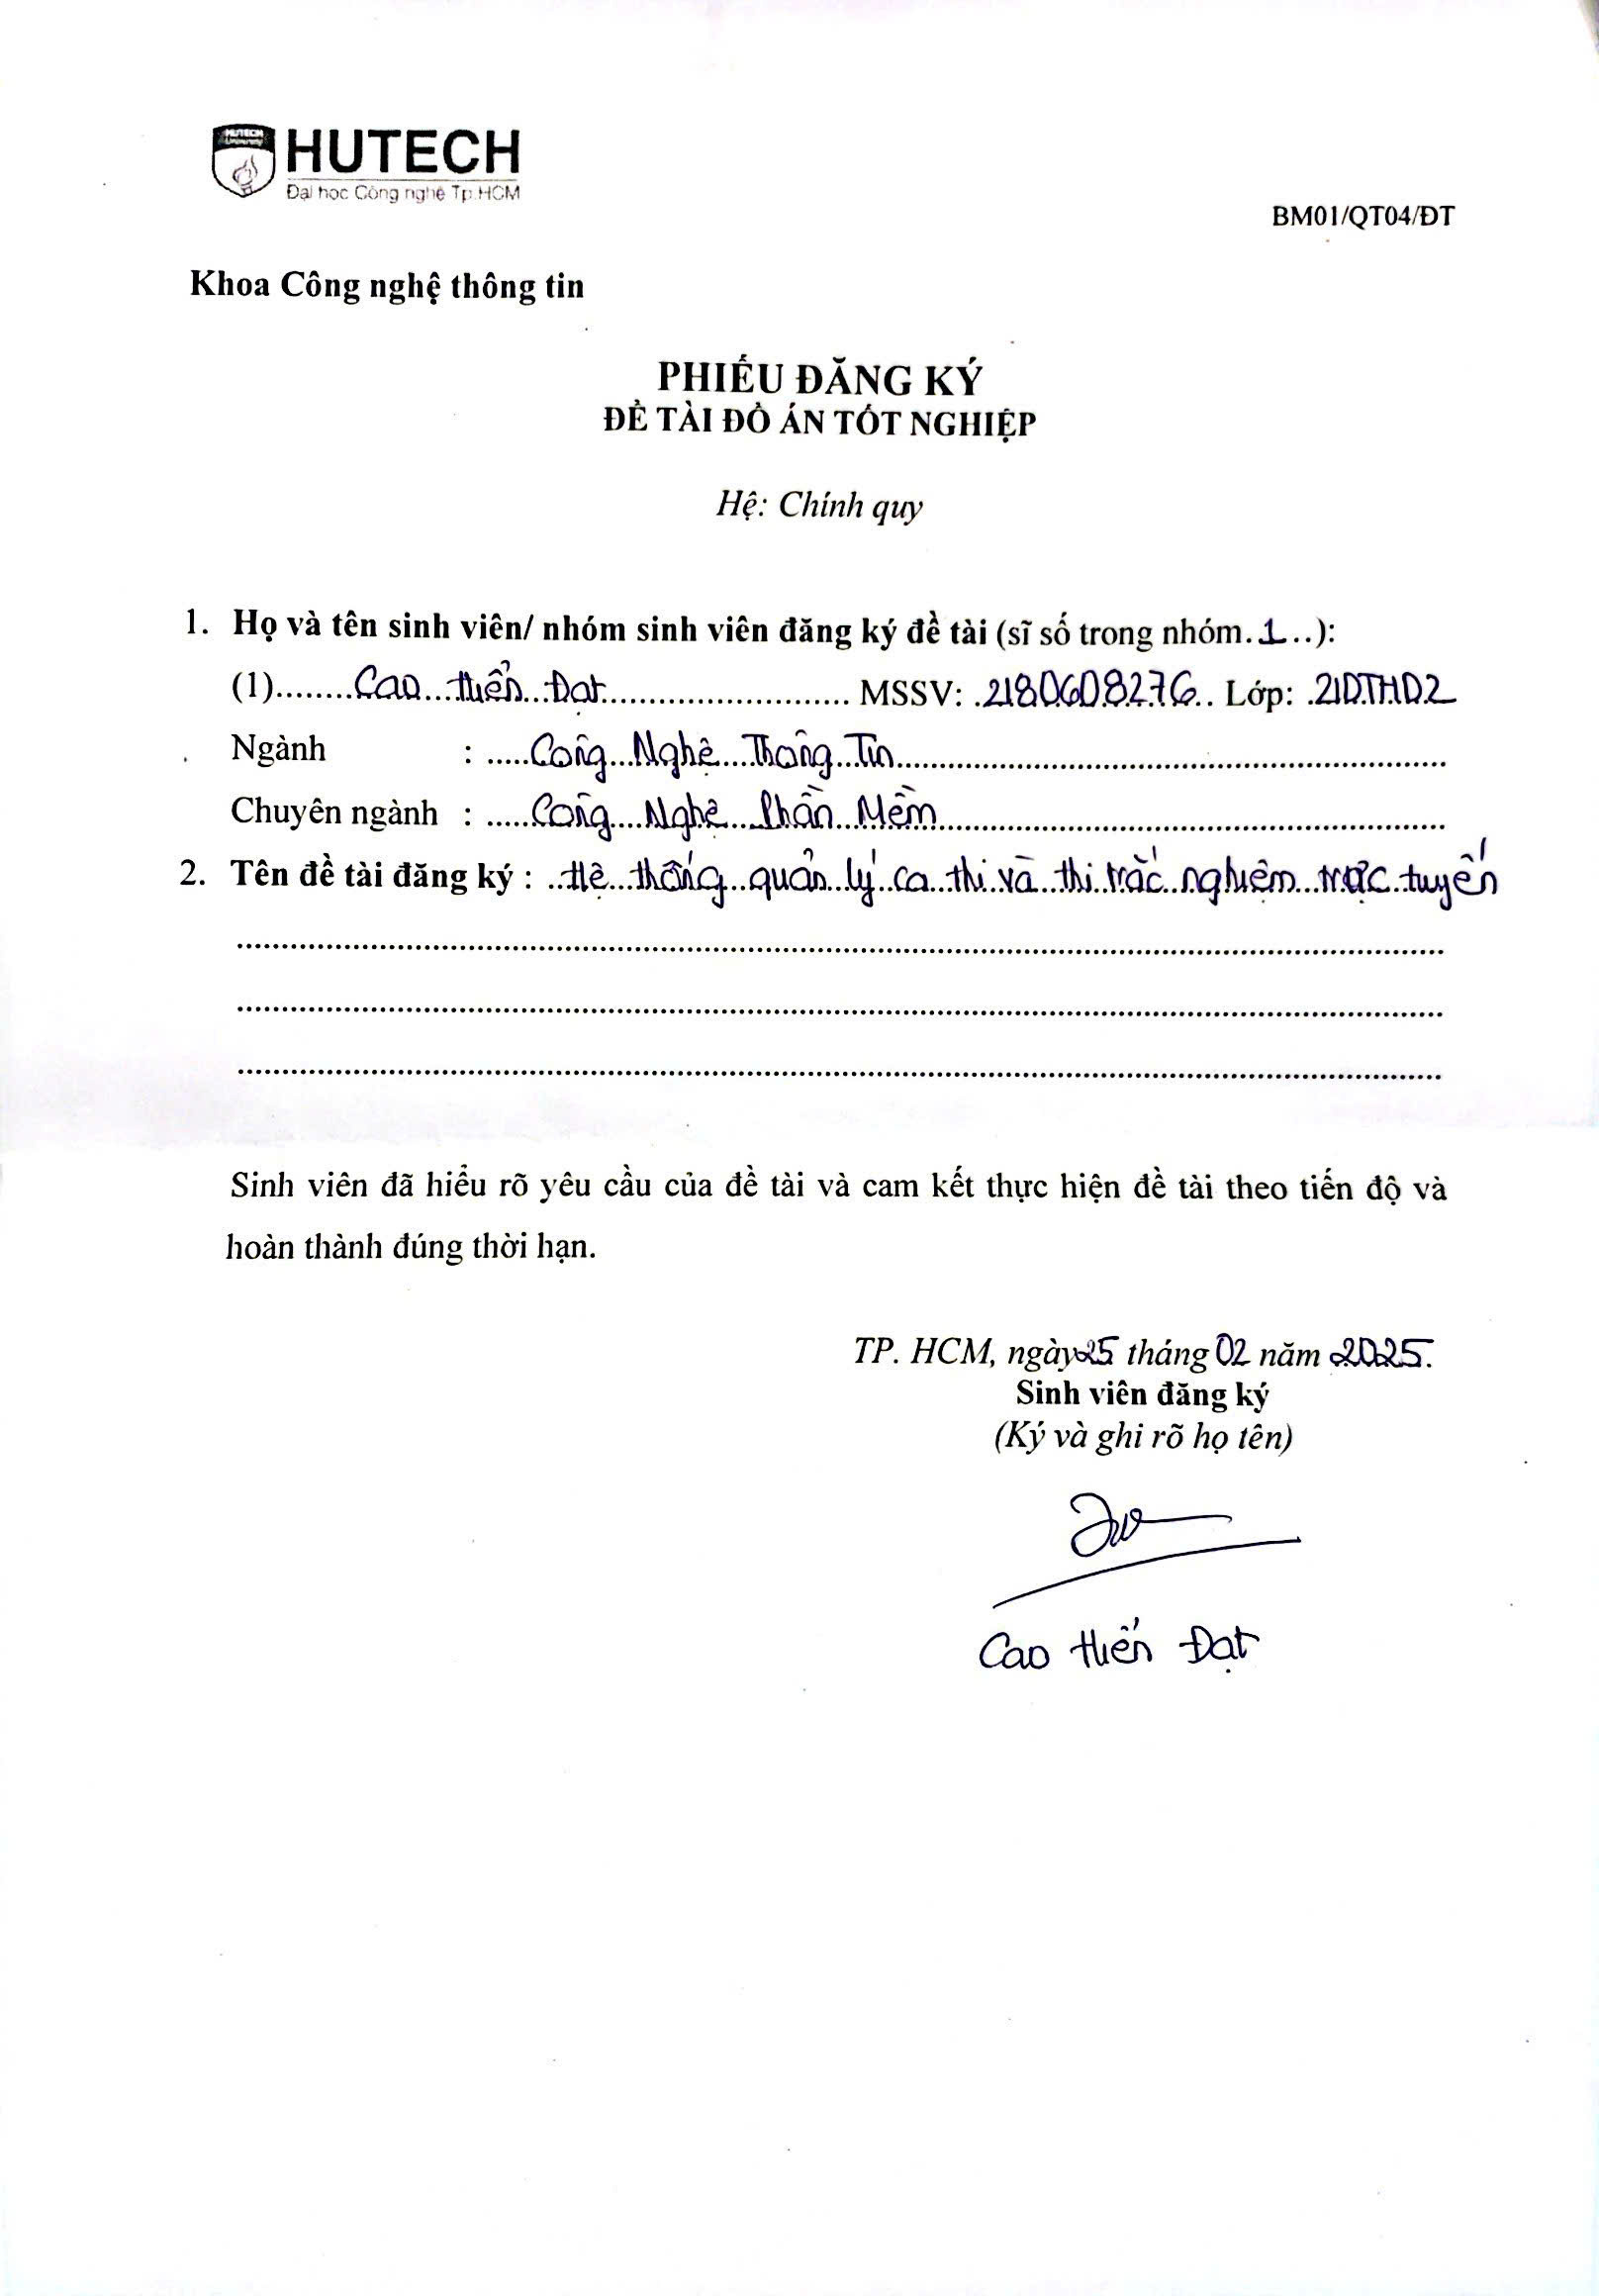 HUTECH University
HUTECH
Đại học Công nghệ Tp.HCM
BM01/QT04/ĐT
Khoa Công nghệ thông tin
PHIẾU ĐĂNG KÝ
ĐỀ TÀI ĐỒ ÁN TỐT NGHIỆP
Hệ: Chính quy
1. Họ và tên sinh viên/ nhóm sinh viên đăng ký đề tài (sĩ số trong nhóm.1..):
(1)........Cao Hiển Đạt........ MSSV: .2180608276.. Lớp: .21DTHD2
Ngành : .....Công Nghệ Thông Tin........
Chuyên ngành : .....Công Nghệ Phần Mềm........
2. Tên đề tài đăng ký : ..Hệ thống quản lý ca thi và thi trắc nghiệm trực tuyến
Sinh viên đã hiểu rõ yêu cầu của đề tài và cam kết thực hiện đề tài theo tiến độ và
hoàn thành đúng thời hạn.
TP. HCM, ngày 25 tháng 02 năm 2025.
Sinh viên đăng ký
(Ký và ghi rõ họ tên)
Cao Hiển Đạt